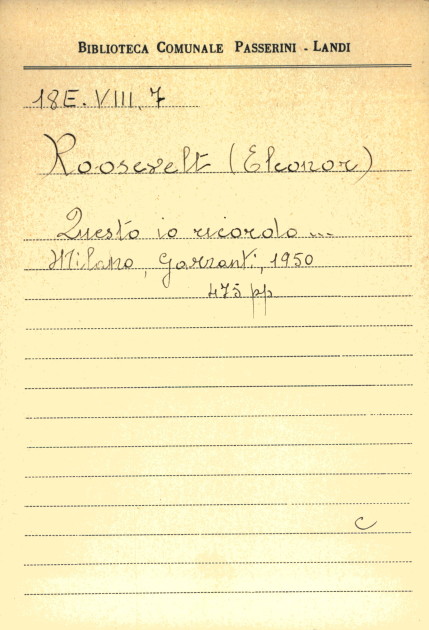 BIBLIOTECA COMUNALE PASSERINI - LANDI
18E. VIII. 7
Roosevelt (Eleonor)
Questo io ricordo ...
Milano, Garzanti, 1950
475 pp
C